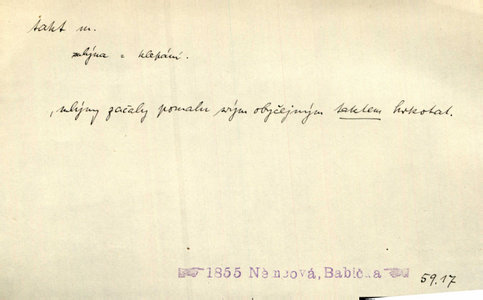 takt m.
mlýna = klepání.
, mlýny začaly pomalu svým obyčejným taktem hrkotat.
1855 Němcová, Babička
59.17